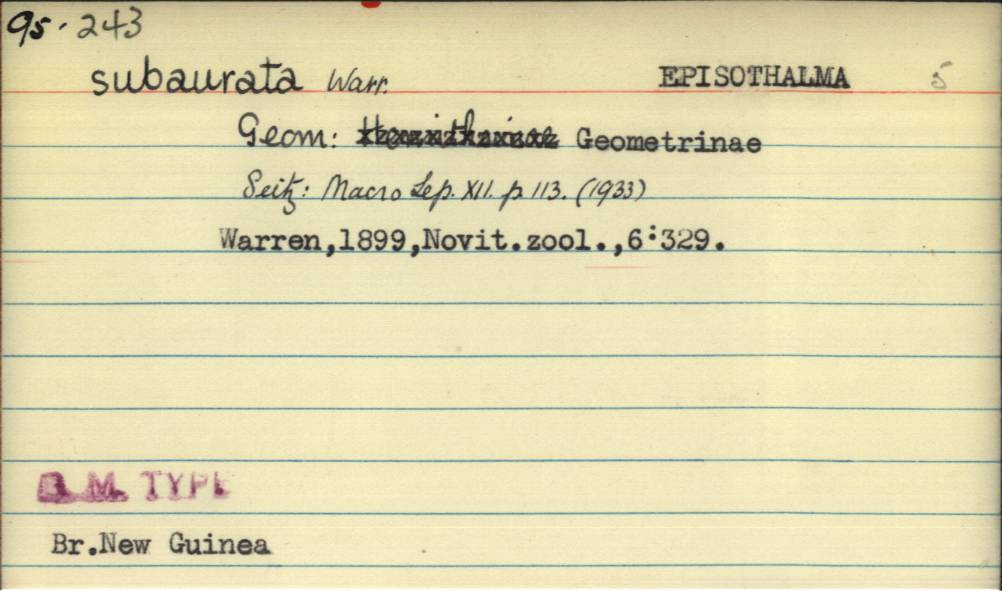 95.243
subaurata Warr. EPISOTHALMA 5
Geom: Hemitheinae Geometrinae
Seitz: Macro Lep. XII. p 113. (1933)
Warren,1899,Novit.zool.,6:329.
B.M. TYPE
Br.New Guinea